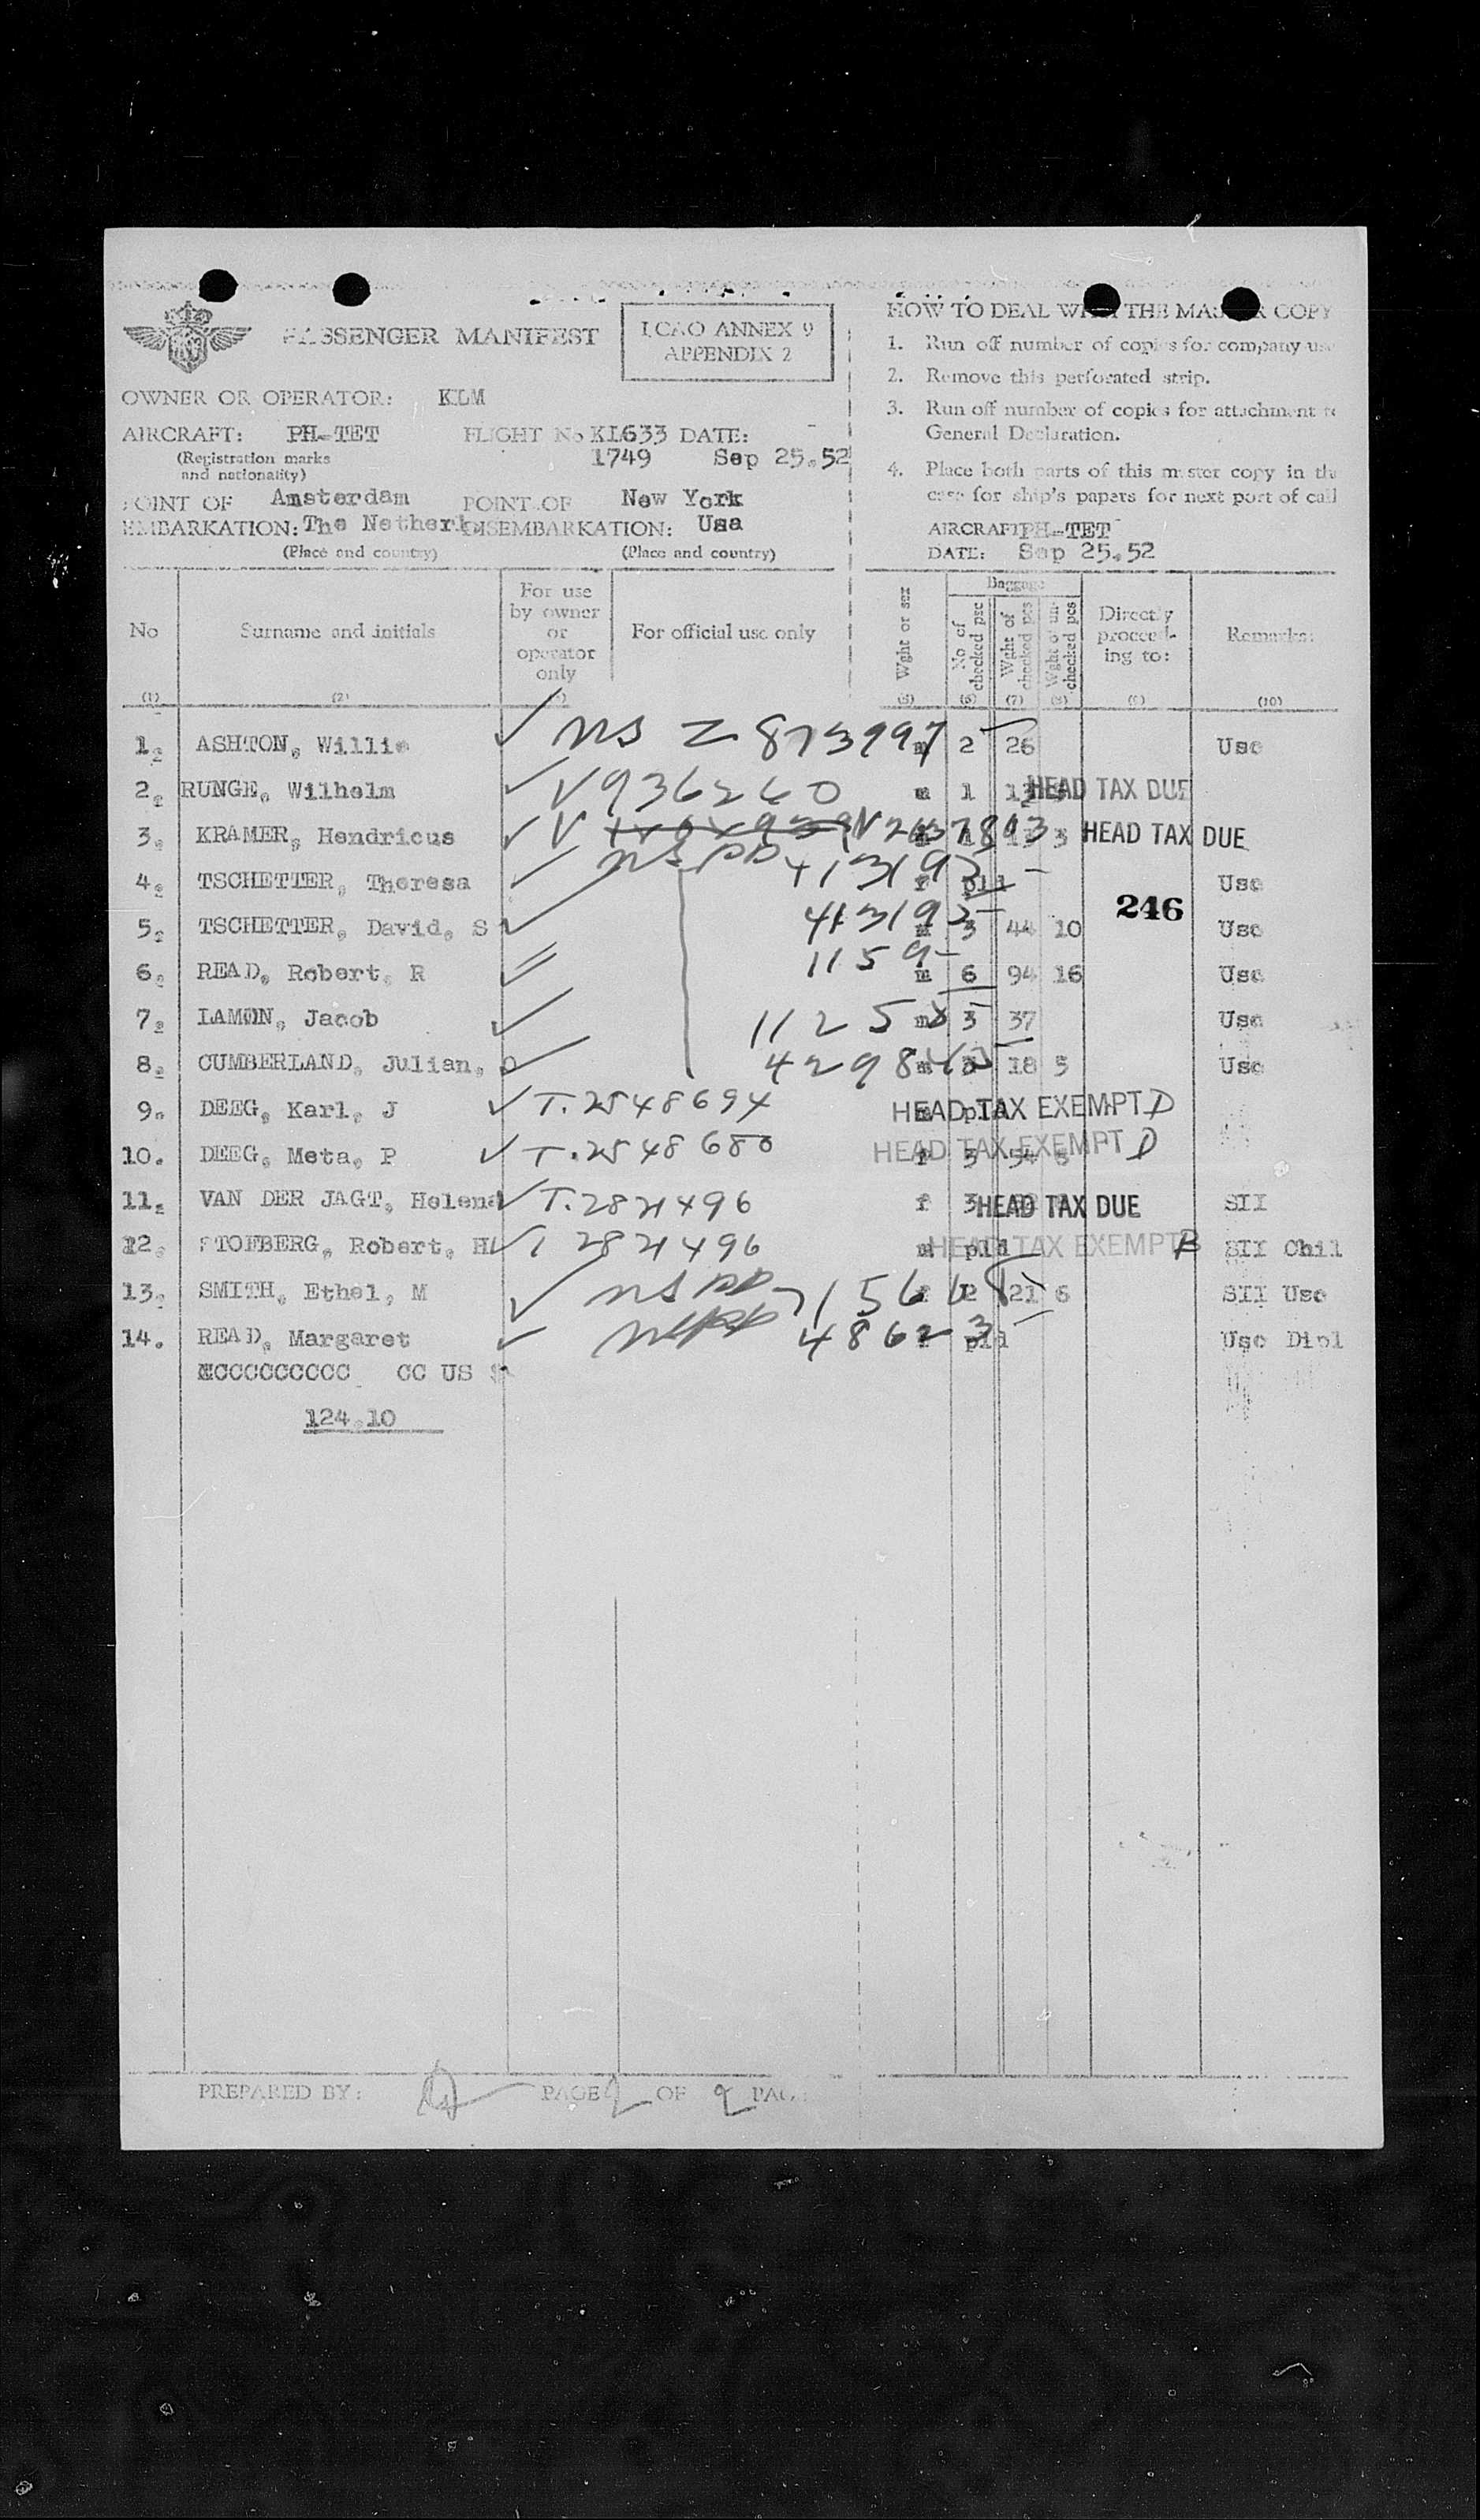 PASSENGER MANIFEST
ICAO ANNEX 9
APPENDIX 2
OWNER OR OPERATOR: KLM
AIRCRAFT: PH-TET FLIGHT No KL633 DATE:
(Registration marks and nationality)
1749 Sep 25.52
POINT OF EMBARKATION: Amsterdam The Netherl
POINT OF DISEMBARKATION: New York Usa
(Place and country) (Place and country)
HOW TO DEAL WITH THE MASTER COPY
1. Run off number of copies for company use
2. Remove this perforated strip.
3. Run off number of copies for attachment to
General Declaration.
4. Place both parts of this master copy in the
case for ship's papers for next port of call
AIRCRAFT: PH-TET
DATE: Sep 25.52
No Surname and initials For use by owner or operator only For official use only Wght or sex Baggage No of checked psc Wght of checked pcs Wght of un-checked pcs Directly proceed-ing to: Remarks:
(1) (2) (5) (6) (7) (8) (9) (10)
1. ASHTON, Willie ns Z 873997 m 2 26 Usc
2. RUNGE, Wilhelm V936260 m 1 HEAD TAX DUE
3. KRAMER, Hendricus V V2637893 3 HEAD TAX DUE
4. TSCHETTER, Theresa ns pp 413193 f pld Usc
246
5. TSCHETTER, David, S 413192 3 44 10 Usc
6. READ, Robert, R 1159 m 6 94 16 Usc
7. LAMON, Jacob 11258 m 3 37 Usc
8. CUMBERLAND, Julian, D 4298 m 18 5 Usc
9. DEEG, Karl, J T.2548694 m pld HEAD TAX EXEMPT D
10. DEEG, Meta, P T.2548680 f 3 54 HEAD TAX EXEMPT D
11. VAN DER JAGT, Helena T.2821496 f 3 HEAD TAX DUE SII
12. STOFBERG, Robert, H T 2821496 m pld HEAD TAX EXEMPT B SII Chil
13. SMITH, Ethel, M ns pp 2 21 6 SII Usc
14. READ, Margaret 48623 pld Usc Dipl
CCCCCCCCCC CC US
124.10
PREPARED BY: PAGE 2 OF 2 PAG